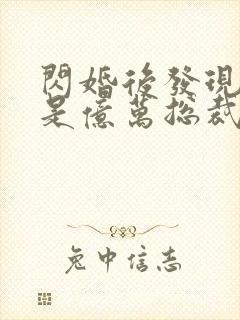 閃婚後發現
是億萬總裁
兔中信志